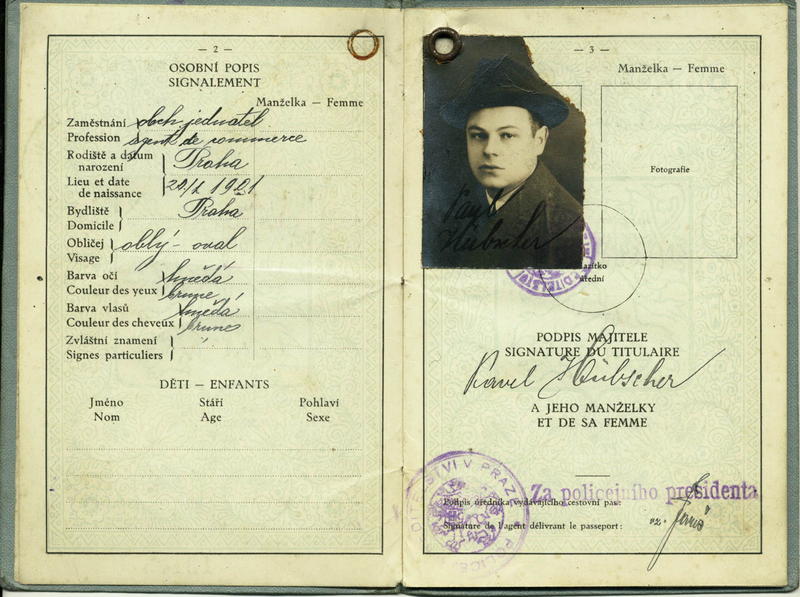 — 2 —
OSOBNÍ POPIS
SIGNALEMENT
Manželka — Femme
Zaměstnání obch jednatel
Profession agent de commerce
Rodiště a datum narození Praha
Lieu et date de naissance 1901
Bydliště Praha
Domicile
Obličej oblý - oval
Visage
Barva očí hnědá
Couleur des yeux brune
Barva vlasů hnědá
Couleur des cheveux brunes
Zvláštní znamení "
Signes particuliers
DĚTI — ENFANTS
Jméno Stáří Pohlaví
Nom Age Sexe
— 3 —
Manželka — Femme
Fotografie
Pavel
Hübscher
úřední
PODPIS MAJITELE
SIGNATURE DU TITULAIRE
Pavel Hübscher
A JEHO MANŽELKY
ET DE SA FEMME
DITELSTVÍ V PRAZE
POLICE
Za policejního presidenta
Podpis úředníka vydávajícího cestovní pas:
Signature de l'agent délivrant le passeport: